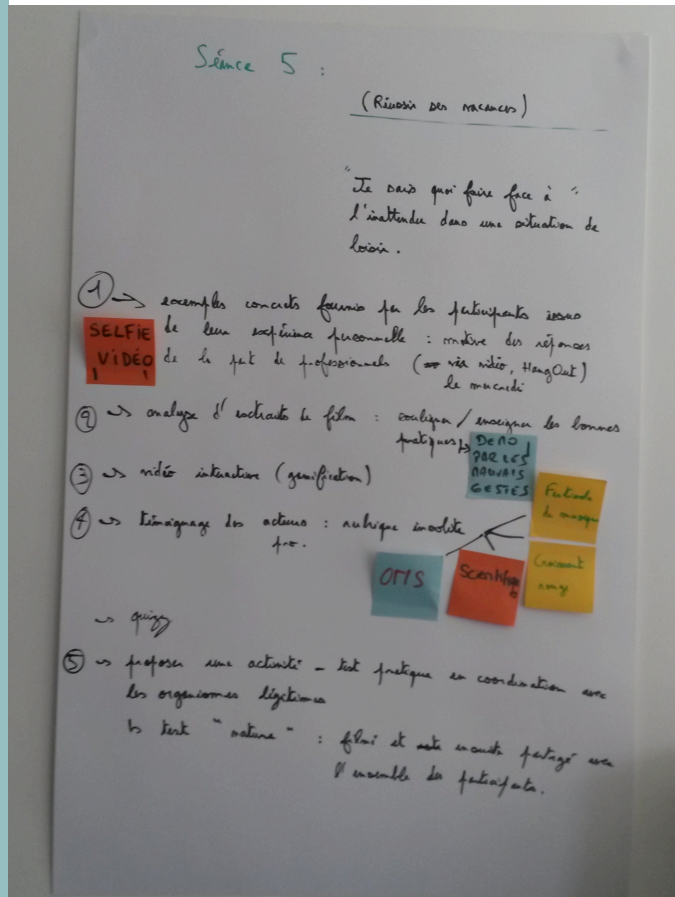 Séance 5 :
(Réussir ses vacances)
"Je sais quoi faire face à "
l'inattendu dans une situation de
loisir.
① → exemples concrets fournis par les participants issus
SELFIE
VIDÉO
! !
de leur expérience personnelle : motive des réponses
de la part de professionnels ( via vidéo, HangOut)
le mercredi
② → analyse d'extraits de film : souligner / enseigner les bonnes
pratiques
DEMO
PAR LES
MAUVAIS
GESTES
③ → vidéo interactive (gamification)
Festivals
de musique
④ → témoignage des acteurs : rubrique insolite
pro.
OMS
Scientifique
Croissant
rouge
→ quizz
⑤ → proposer une activité - test pratique en coordination avec
les organismes légitimes
↳ test "nature" : filmé et ensuite partagé avec
l'ensemble des participants.